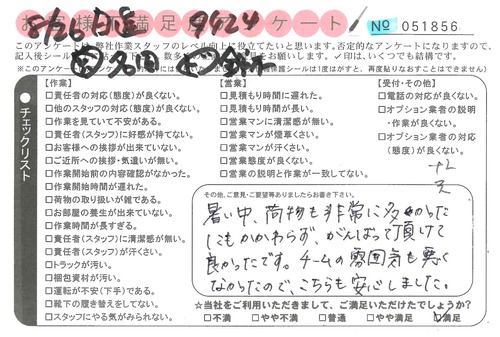 お客様不満足度アンケート
8/26
9424
№ 051856
このアンケートは、弊社作業スタッフのレベル向上に役立てたいと思います。否定的なアンケートになりますので、
チェックリスト
【作業】
□責任者の対応(態度)が良くない。
□他のスタッフの対応(態度)が良くない。
□作業を見ていて不安がある。
□責任者(スタッフ)に好感が持てない。
□お客様への挨拶が出来ていない。
□ご近所への挨拶・気遣いが無い。
□作業開始前の内容確認がなかった。
□作業開始時間が遅れた。
□荷物の取り扱いが雑である。
□お部屋の養生が出来ていない。
□作業時間が長すぎる。
□責任者(スタッフ)に清潔感が無い。
□責任者(スタッフ)が汗くさい。
□トラックが汚い。
□梱包資材が汚い。
□運転が不安(下手)である。
□靴下の履き替えをしてない。
□スタッフにやる気がみられない。
【営業】
□見積もりに遅れた。
□見積もり時間が長い。
□営業マンに清潔感が無い。
□営業マンが煙草くさい。
□営業マンが汗くさい。
□営業態度が良くない。
□営業の説明と作業が一致してない。
【受付・その他】
□電話の対応が良くない。
□オプション業者の説明
・作業が良くない。
□オプション業者の対応
(態度)が良くない。
その他、ご意見・ご要望等ありましたらお書き下さい。
暑い中、荷物も非常に多かった
にもかかわらず、がんばって頂けて
良かったです。チームの雰囲気も悪く
なかったので、こちらも安心しました。
☆当社をご利用いただきまして、ご満足いただけたでしょうか?
□不満 □やや不満 □普通 □やや満足 □満足